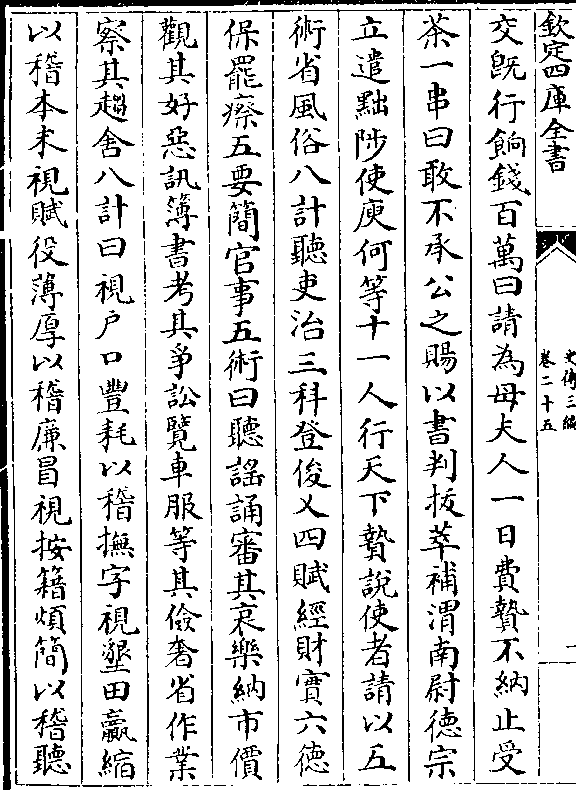 欽定四庫全書
史傳三編
卷二十五
二
交既行餉錢百萬曰請為母夫人一日費贄不納止受
茶一串曰敢不承公之賜以書判拔萃補渭南尉德宗
立遣黜陟使庾何等十一人行天下贄說使者請以五
術省風俗八計聽吏治三科登俊乂四賦經財實六德
保罷瘵五要簡官事五術曰聽謡誦審其哀樂納市價
觀其好惡訊簿書考其爭訟覽車服等其儉奢省作業
察其趨舍八計曰視户口豐耗以稽撫字視墾田贏縮
以稽本末視賦役薄厚以稽廉冒視按籍煩簡以稽聽